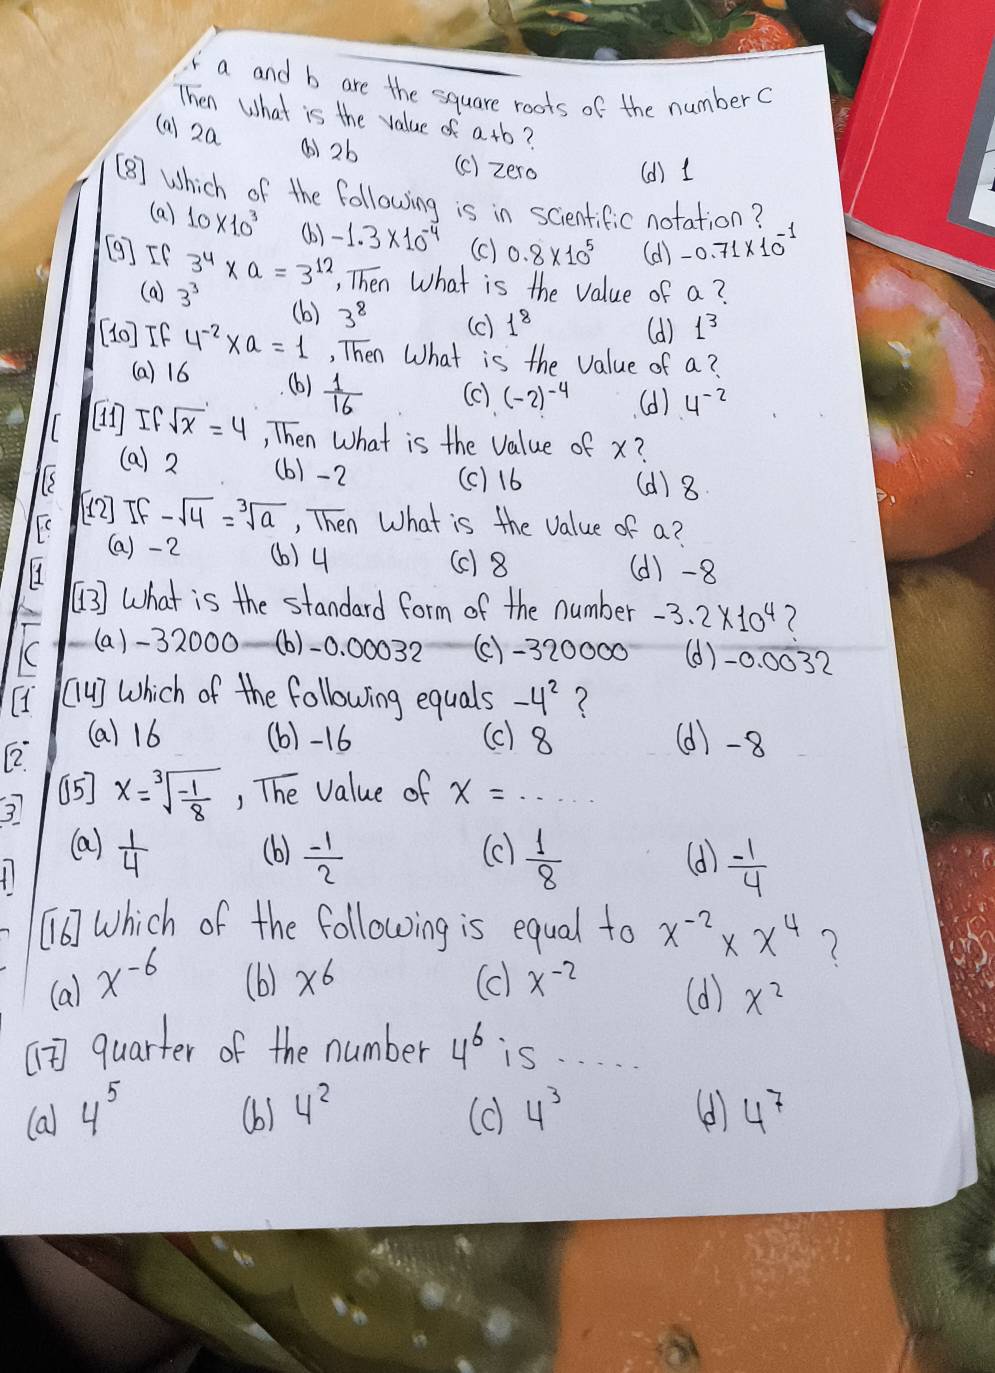 a and b are the square roots of the number C
Then What is the value of a+b?
(a) 2a (b) 2b (c) zero (d) 1
[8] Which of the following is in scientific notation?
(a) 10×10³ (b) -1.3×10⁻⁴ (c) 0.8×10⁵ (d) -0.71×10⁻¹
[9] If 3⁴ × a = 3¹², Then What is the value of a?
(a) 3³ (b) 3⁸ (c) 1⁸ (d) 1³
[10] If 4⁻² × a = 1, Then What is the value of a?
(a) 16 (b) 1/16 (c) (-2)⁻⁴ (d) 4⁻²
[11] If √x = 4, Then What is the value of x?
(a) 2 (b) -2 (c) 16 (d) 8
[12] If -√4 = ³√a, Then What is the value of a?
(a) -2 (b) 4 (c) 8 (d) -8
[13] What is the standard form of the number -3.2×10⁴?
(a) -32000 (b) -0.00032 (c) -320000 (d) -0.0032
[14] Which of the following equals -4²?
(a) 16 (b) -16 (c) 8 (d) -8
[15] x = ³√(-1/8), The value of x = .....
(a) 1/4 (b) -1/2 (c) 1/8 (d) -1/4
[16] Which of the following is equal to x⁻² × x⁴?
(a) x⁻⁶ (b) x6 (c) x⁻² (d) x²
[17] quarter of the number 4⁶ is .....
(a) 4⁵ (b) 4² (c) 4³ (d) 4⁷